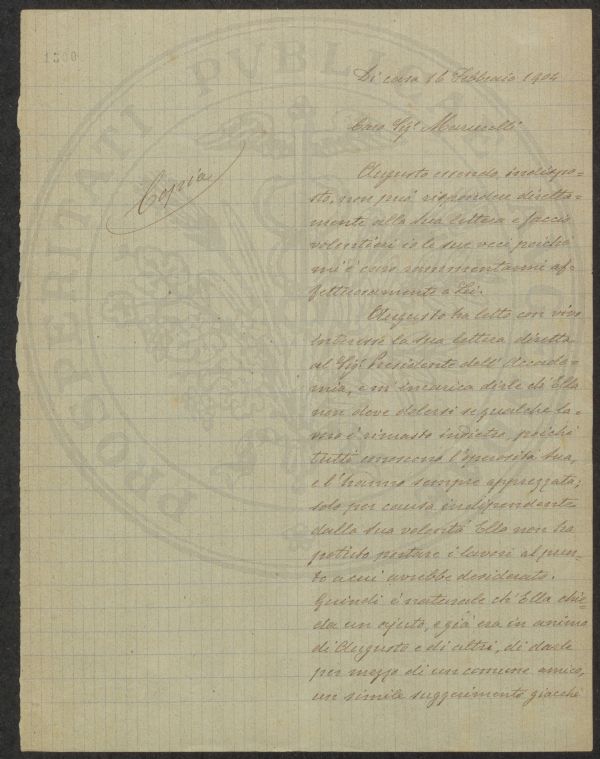 1360
Di casa 16 Febbraio 1904
Caro Sigr Marucelli
Copia
Augusto essendo indispo=
sto, non può rispondere diretta=
mente alla sua lettera e faccio
volentieri io le sue veci, poichè
mi è caro rammentarmi af=
fettuosamente a Lei.
Augusto ha letto con vivo
interesse la sua lettera diretta
al Sigr Presidente dell' Accade=
mia, e m' incarica dirle ch' Ella
non deve dolersi se qualche la=
voro è rimasto indietro, poichè
tutti conoscono l' operosità sua,
e l' hanno sempre apprezzata;
solo per causa indipendente
dalla sua volontà Ella non ha
potuto portare i lavori al pun=
to a cui avrebbe desiderato.
Quindi è naturale ch' Ella chie=
da un ajuto, e già era in animo
di Augusto e di altri, di darle
per mezzo di un comune amico,
un simile suggerimento giacchè
PROSPERITATI PVBLICAE